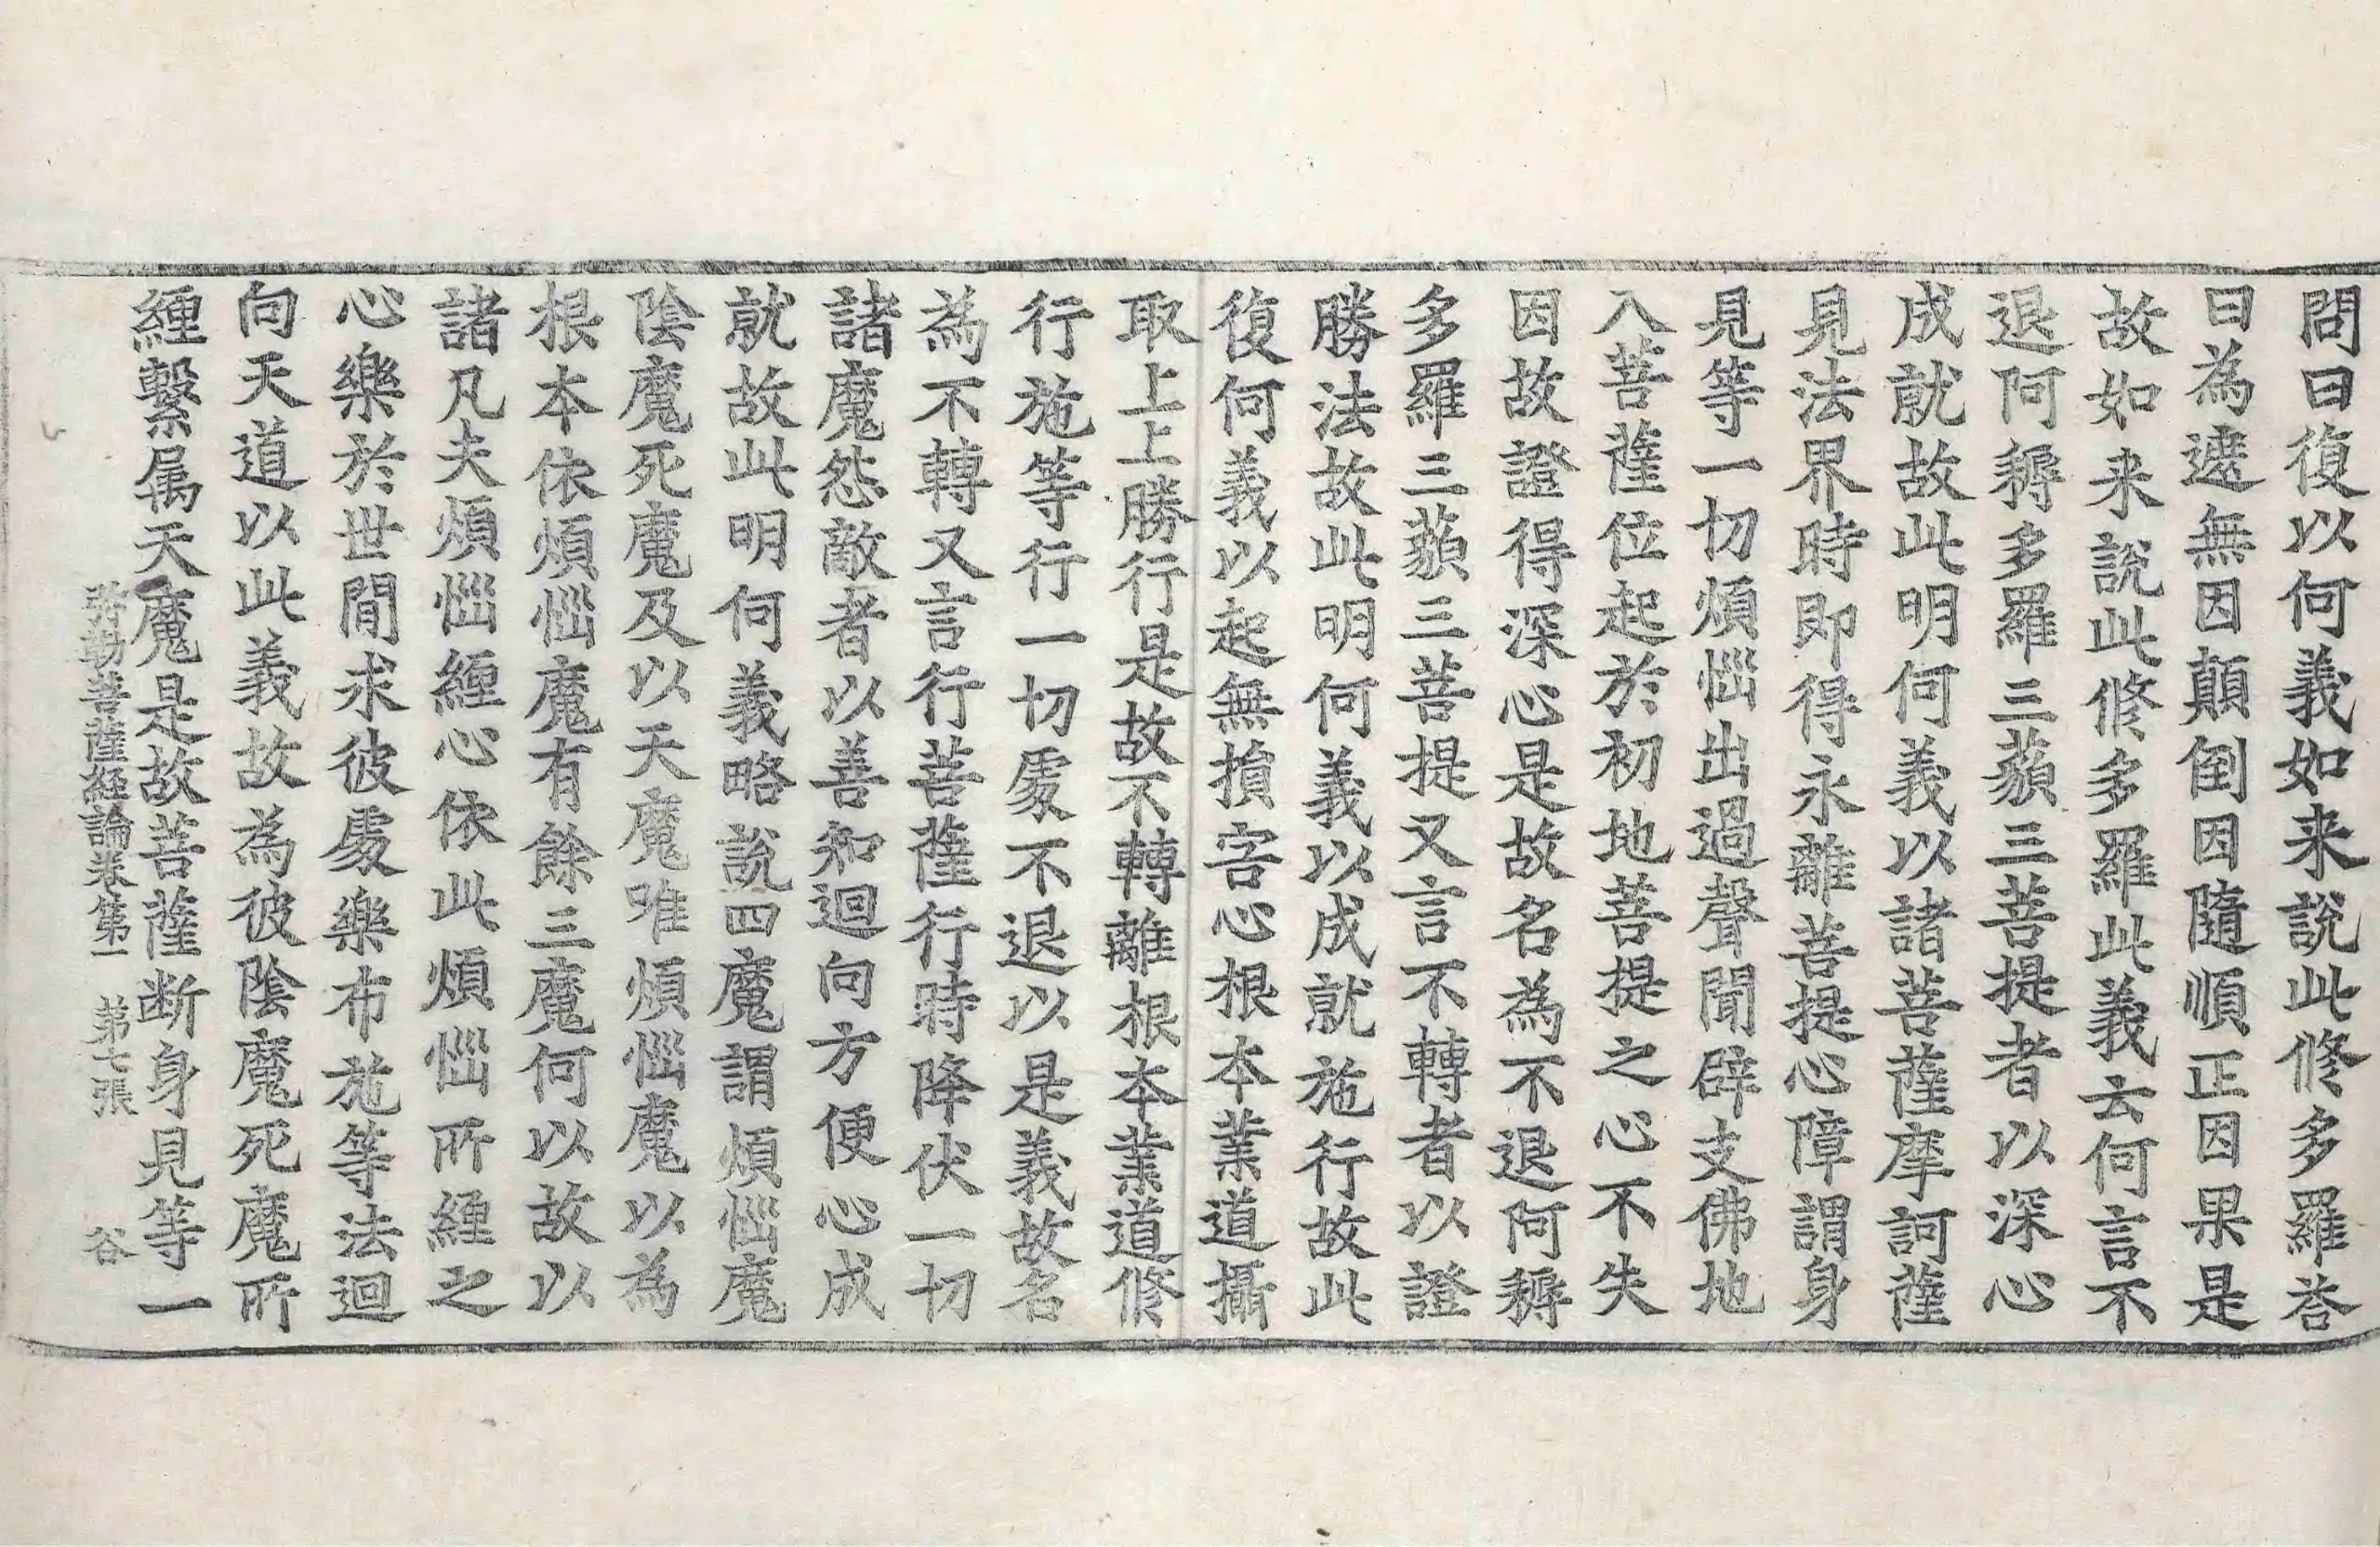 問曰復以何義如来說此修多羅荅
曰為遮無因顛倒因隨順正因果是
故如来說此修多羅此義云何言不
退阿耨多羅三藐三菩提者以深心
成就故此明何義以諸菩薩摩訶薩
見法界時即得永離菩提心障謂身
見等一切煩惱出過聲聞辟支佛地
入菩薩位起於初地菩提之心不失
因故證得深心是故名為不退阿耨
多羅三藐三菩提又言不轉者以證
勝法故此明何義以成就施行故此
復何義以起無損害心根本業道攝
取上上勝行是故不轉離根本業道修
行施等行一切處不退以是義故名
為不轉又言行菩薩行時降伏一切
諸魔怨敵者以善知迴向方便心成
就故此明何義略說四魔謂煩惱魔
陰魔死魔及以天魔唯煩惱魔以為
根本依煩惱魔有餘三魔何以故以
諸凡夫煩惱纏心依此煩惱所纏之
心樂於世間求彼處樂布施等法迴
向天道以此義故為彼陰魔死魔所
纏繫属天魔是故菩薩断身見等一
弥勒菩薩経論卷第一 第七張 谷